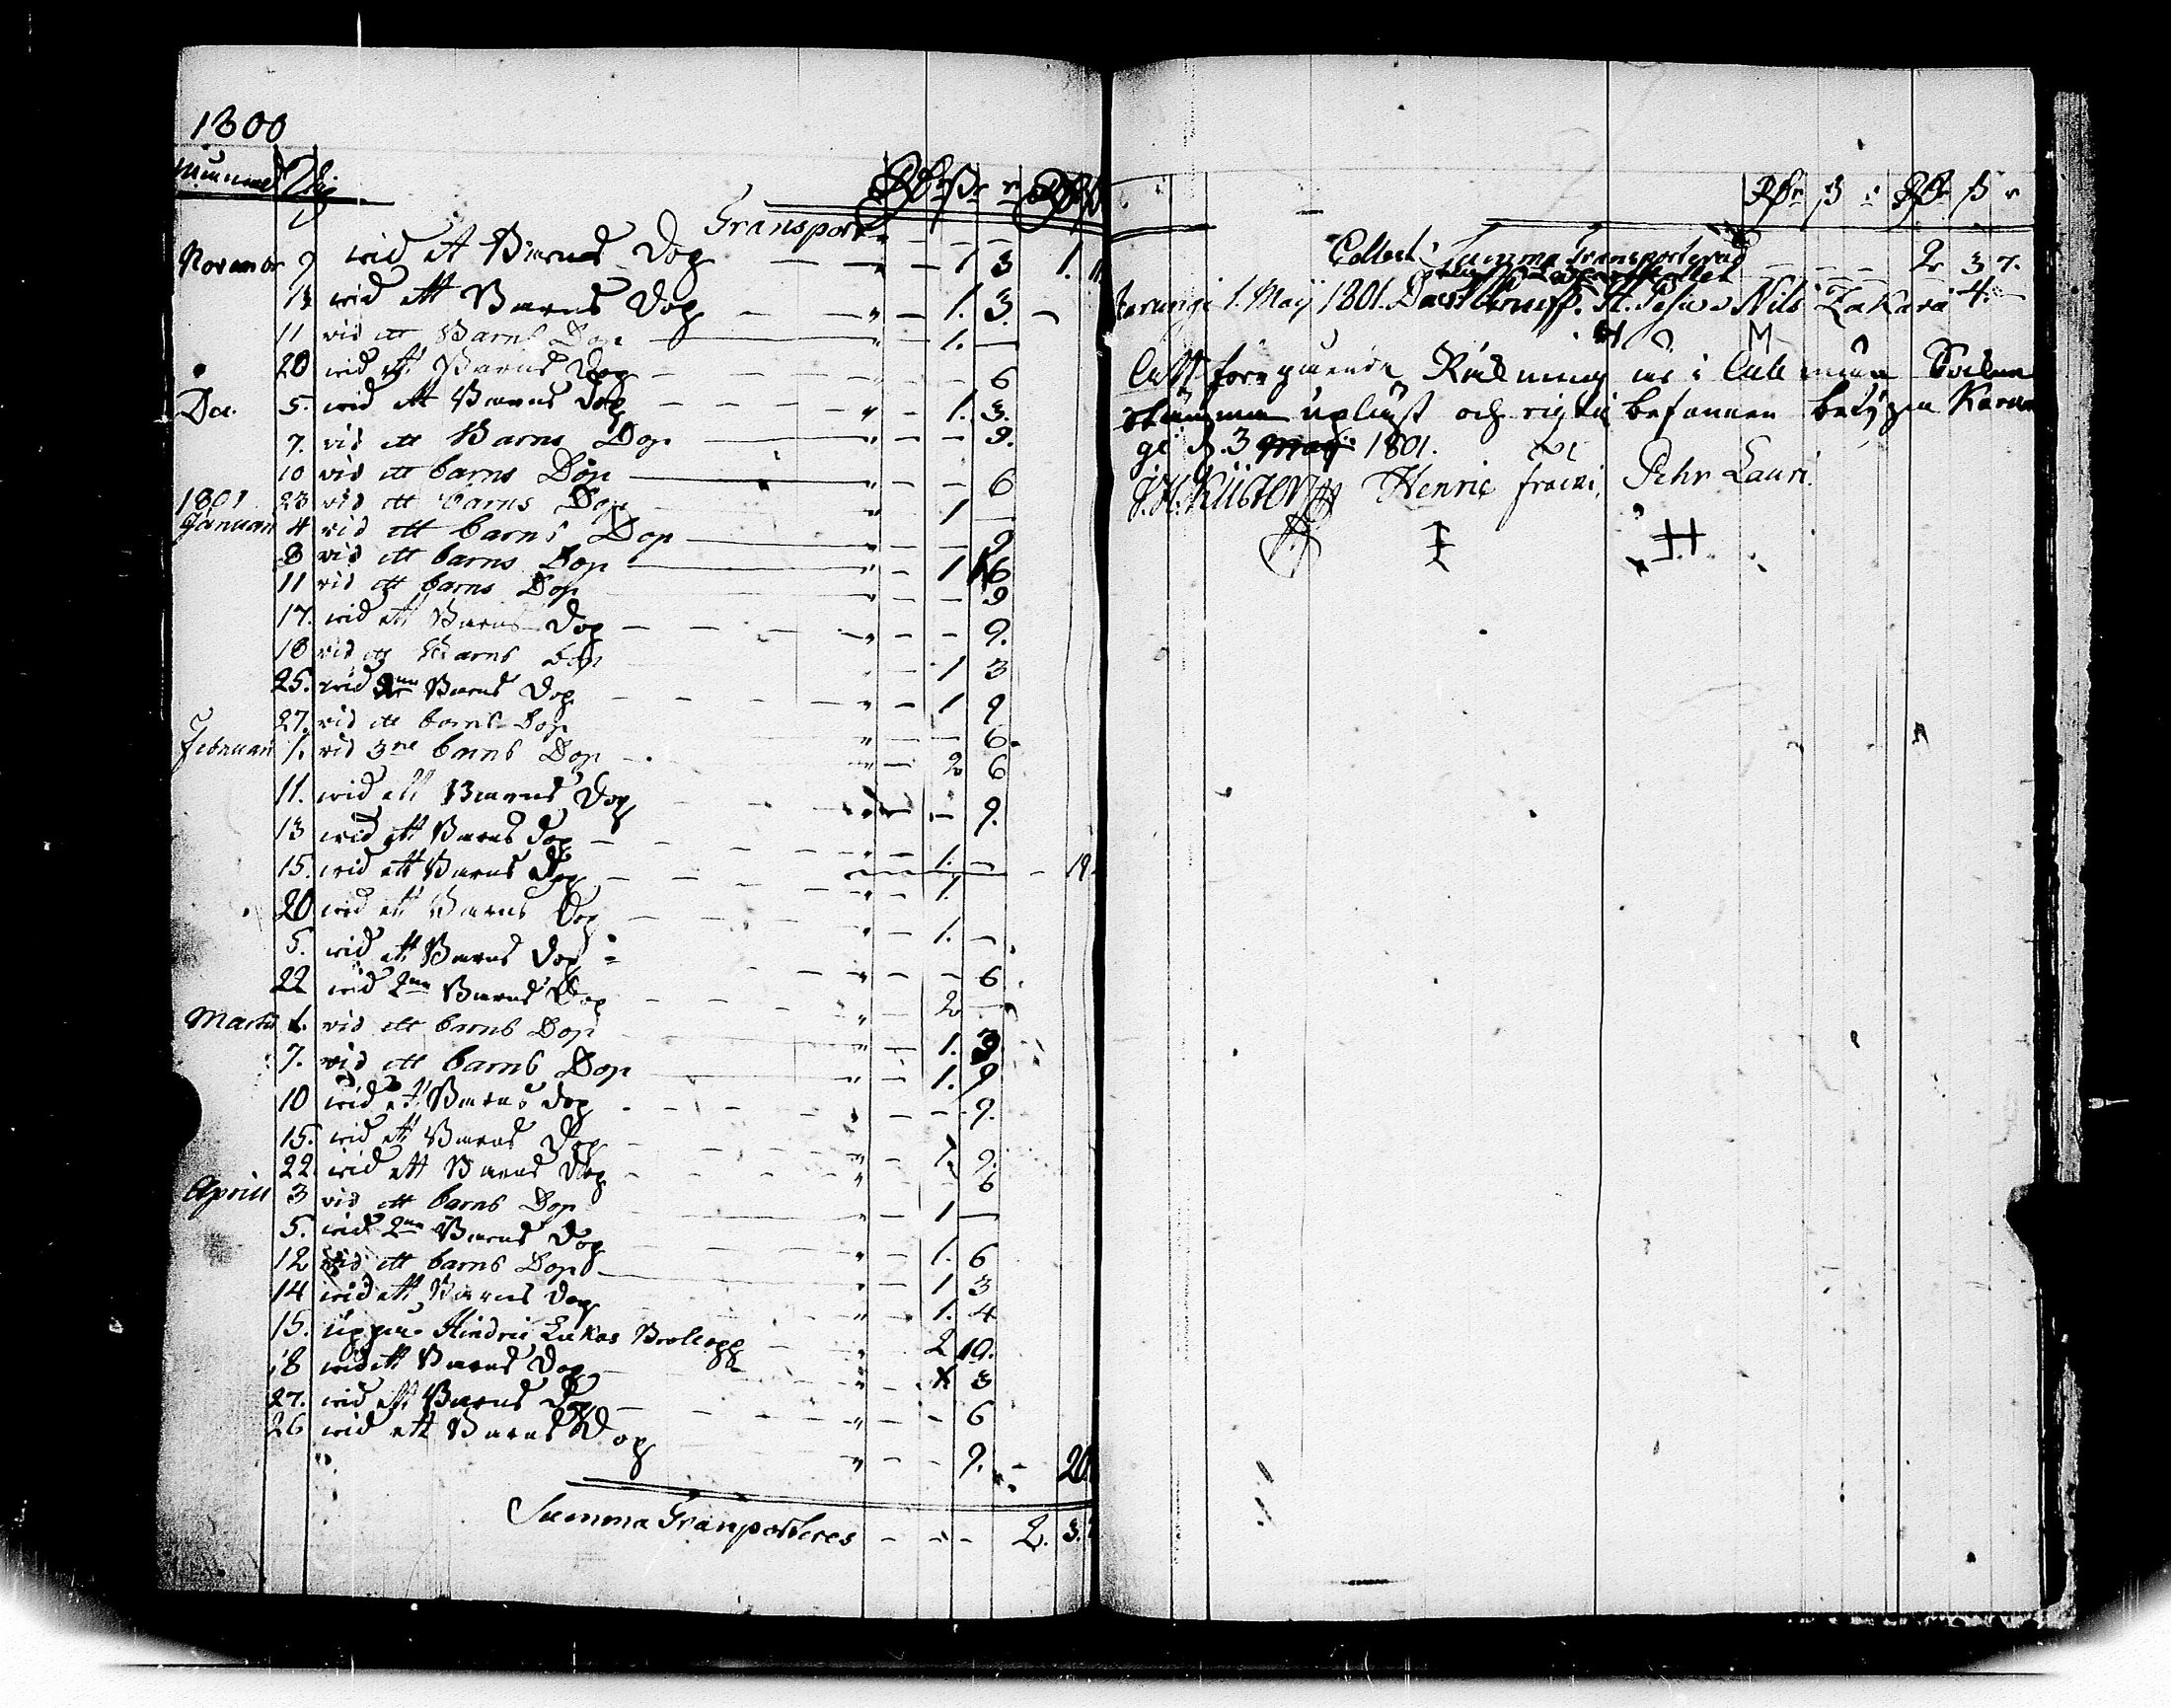 1800
Dag
Transport
Novemb 9 wid et Barns Dop 1 3 1.
wid ett Barns Dop 1. 3.
11 vid ett Barns Dop 1. —
20 wid ett Barns Dop 6
Dec. 5. wid ett Barns Dop 1. 3.
7. vid ett Barns Dop 9.
10 vid ett barns Dop 6
1801 23 vid ett barns Dop 1 —
Januari 4 vid ett barns Dop 9
8 vid ett barns Dop 1 6
11 vid ett barns Dop 9
17. wid ett Barns Dop 9.
18 vid ett Barns Dop 1 3
25. wid 2ne Barns Dop 1 9
27. vid ett barns Dop 6.
Februari 1. vid 3ne barns Dop 2 6
11. wid ett Barns Dop 9.
13 wid ett Barns Dop 1. —
15. wid ett Barns Dop 1. 19.
20 wid ett Barns Dop 1. —
5. wid ett Barns Dop 6
22 wid 2ne Barns Dop 2 —
Martii 1. vid ett barns Dop 1. 3
7. vid ett barns Dop 1. 9
10 wid et Barns Dop 9.
15. wid ett Barns Dop 1. 9.
22. wid ett Barns Dop 6
Aprill 3 vid ett barns Dop 1 —
5. wid 2ne Barns Dop 1. 6
12 vid ett barns Dop 1 3
14 wid ett Barns Dop 1. 4
15. uppå Hindric Lukas Brollopp 2 10.
18 wid ett Barns Dop 3
27. wid ett Barns Dop 6
26 wid ett Barns Dop 9. 20
Summa Transporteres 2. 3.
Collect Summa Transporterad 2 3 7.
Karungi 1. Maij 1801. Nils Zakara 4.
M
föregående Räkning i Allmän Sockne
stämma upläst och rigtig befunnen betygar Karun
gi d. 3 Maij 1801.
J. H. Küster Henric Pehr Lauri.